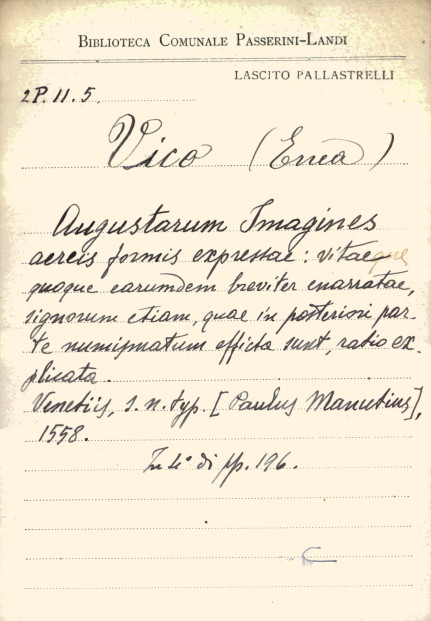 BIBLIOTECA COMUNALE PASSERINI-LANDI
LASCITO PALLASTRELLI
2P.11.5.
Vico (Enea)
Augustarum Imagines
aereis formis expressae: vitae
quoque earumdem breviter enarratae,
signorum etiam, quae in posteriori par-
te numismatum efficta sunt, ratio ex-
plicata.
Venetiis, s. n. typ. [Paulus Manutius],
1558.
In 4° di pp. 196.